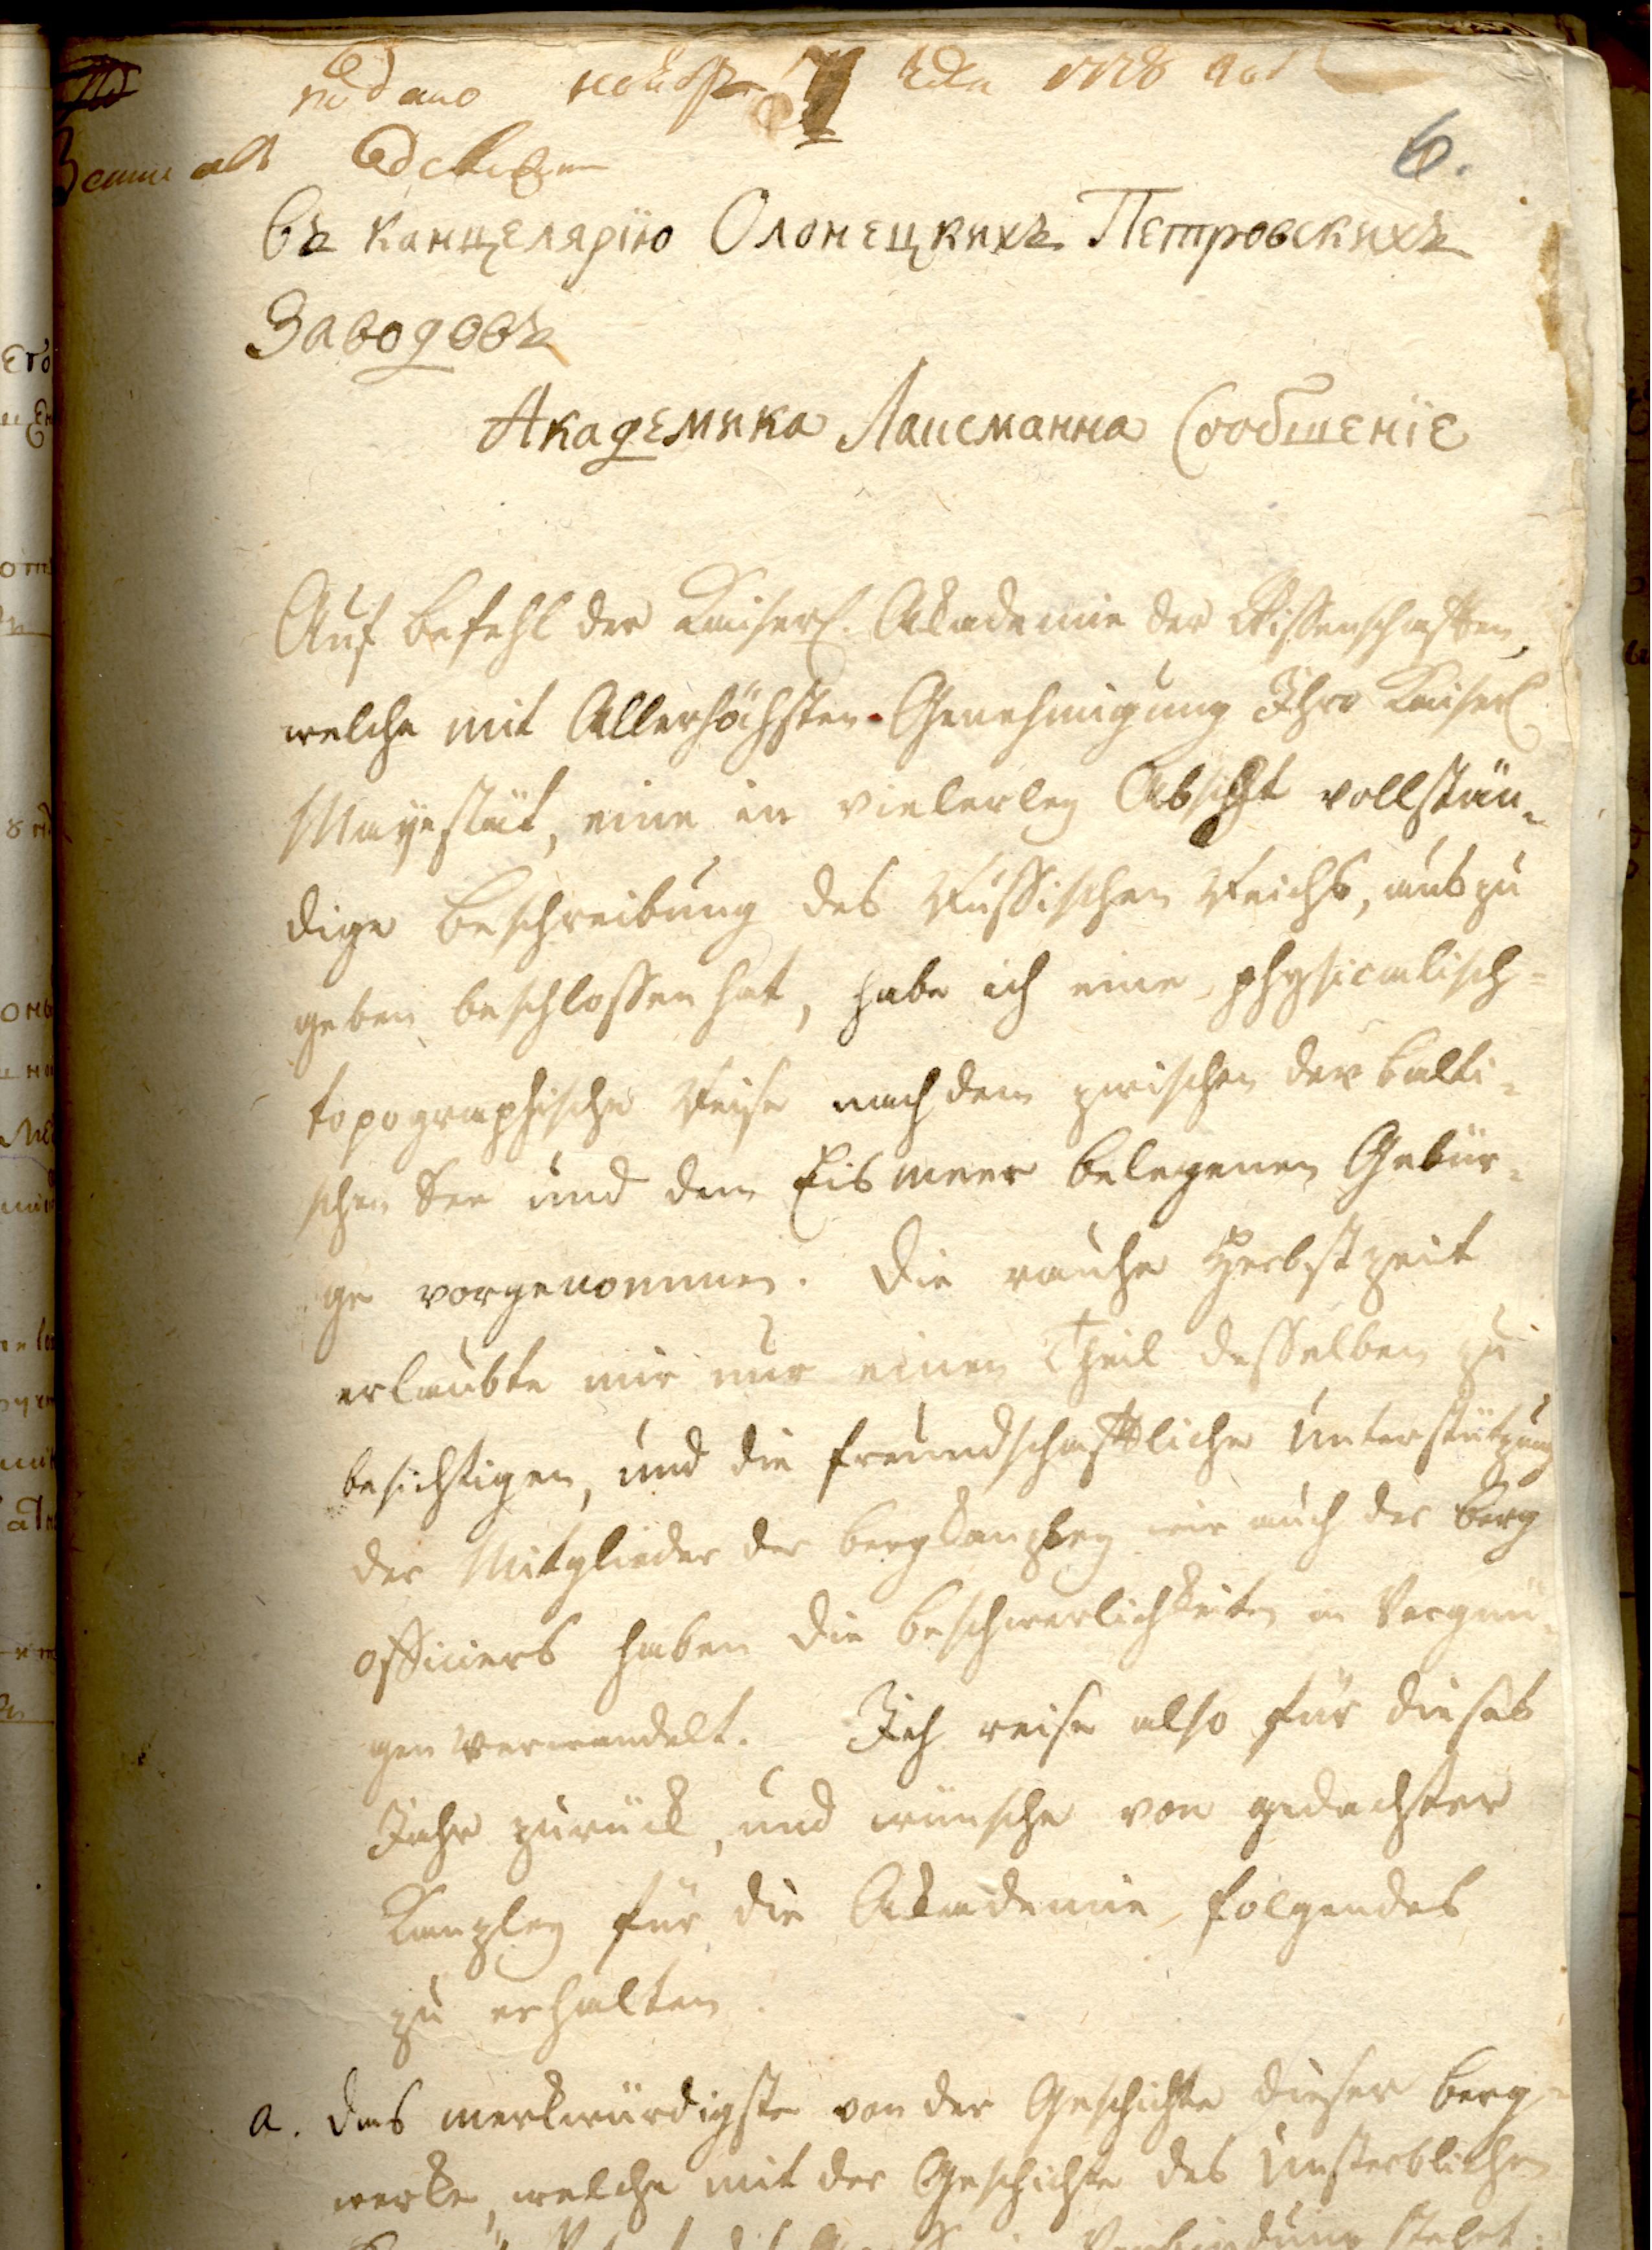 подано ноября 7 дня 1778 год
6.
Въ канцелярїю Олонецкихъ Петровскихъ
Заводовъ
Академика Лаксманна Сообщенїе
Auf Befehl der Kaiserl. Akademie der Wissenschafften,
welche mit Allerhöchsten Genehmigung Ihro Kaiserl
Mayestät, eine in vielerley Absicht vollstän-
dige Beschreibung des Russischen Reichs, auszu
geben beschlossen hat, habe ich eine physicalisch-
topographische Reise nach dem zwischen der Balti-
schen See und dem Eismeer belegenen Gebür-
ge vorgenommen. Die rauhe Herbstzeit
erlaubte mir nur einen Theil desselben zu
besichtigen, und die freundschafftliche Unterstützung
der Mitglieder der Bergkanzley wie auch der Berg
officiers haben die Beschwerlichkeiten in Vergnü-
gen verwandelt. Ich reise also für dieses
Jahr zurück, und wünsche von gedachter
Kanzley für die Akademie folgendes
zu erhalten.
a. das merkwürdigste von der Geschichte dieser Berg-
werke, welche mit der Geschichte des Unsterblichen
Verbindung stehet.